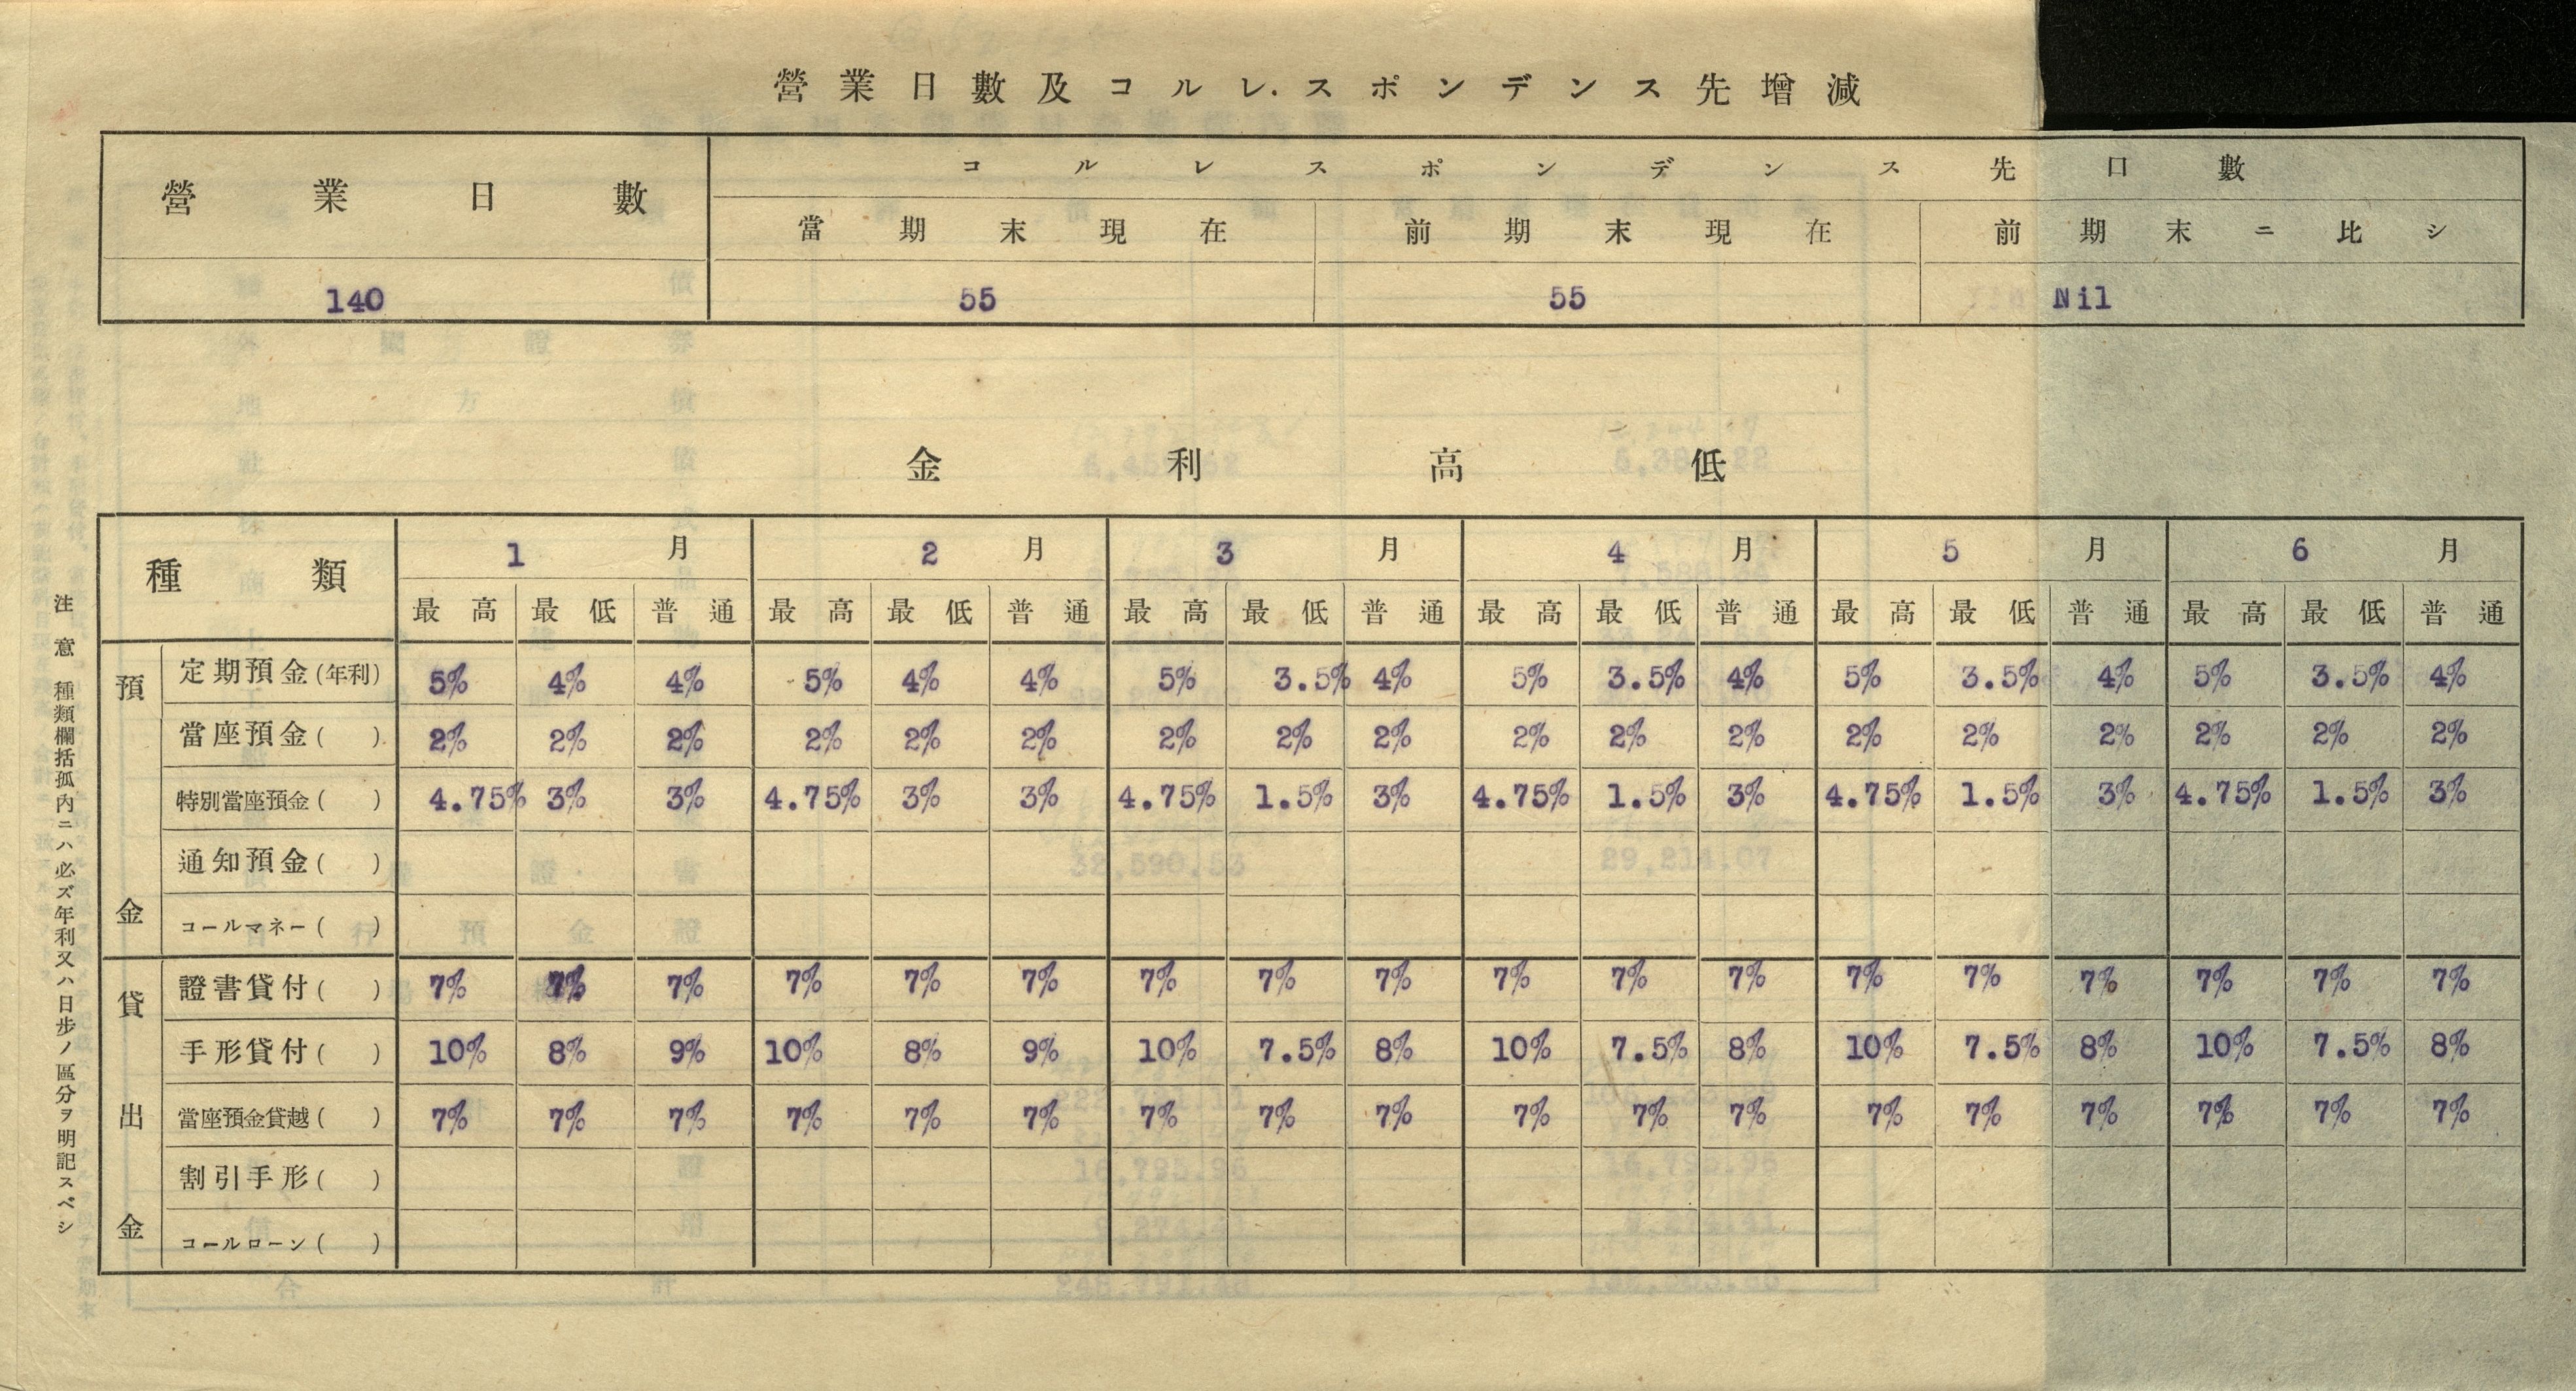 營業日數及コルレスポンデンス先增減
營業日數 コルレスポンデンス先口數
當期末現在 前期末現在 前期末ニ比シ
140 55 55 Nil
金利高低
種類 1月 2月 3月 4月 5月 6月
最高 最低 普通 最高 最低 普通 最高 最低 普通 最高 最低 普通 最高 最低 普通 最高 最低 普通
預金
定期預金(年利) 5% 4% 4% 5% 4% 4% 5% 3.5% 4% 5% 3.5% 4% 5% 3.5% 4% 5% 3.5% 4%
當座預金( ) 2% 2% 2% 2% 2% 2% 2% 2% 2% 2% 2% 2% 2% 2% 2% 2% 2% 2%
特別當座預金( ) 4.75% 3% 3% 4.75% 3% 3% 4.75% 1.5% 3% 4.75% 1.5% 3% 4.75% 1.5% 3% 4.75% 1.5% 3%
通知預金( )
コールマネー( )
貸出金
證書貸付( ) 7% 7% 7% 7% 7% 7% 7% 7% 7% 7% 7% 7% 7% 7% 7% 7% 7% 7%
手形貸付( ) 10% 8% 9% 10% 8% 9% 10% 7.5% 8% 10% 7.5% 8% 10% 7.5% 8% 10% 7.5% 8%
當座預金貸越( ) 7% 7% 7% 7% 7% 7% 7% 7% 7% 7% 7% 7% 7% 7% 7% 7% 7% 7%
割引手形( )
コールローン( )
注意 種類欄括孤內ニハ必ズ年利又ハ日步ノ區分ヲ明記スベシ